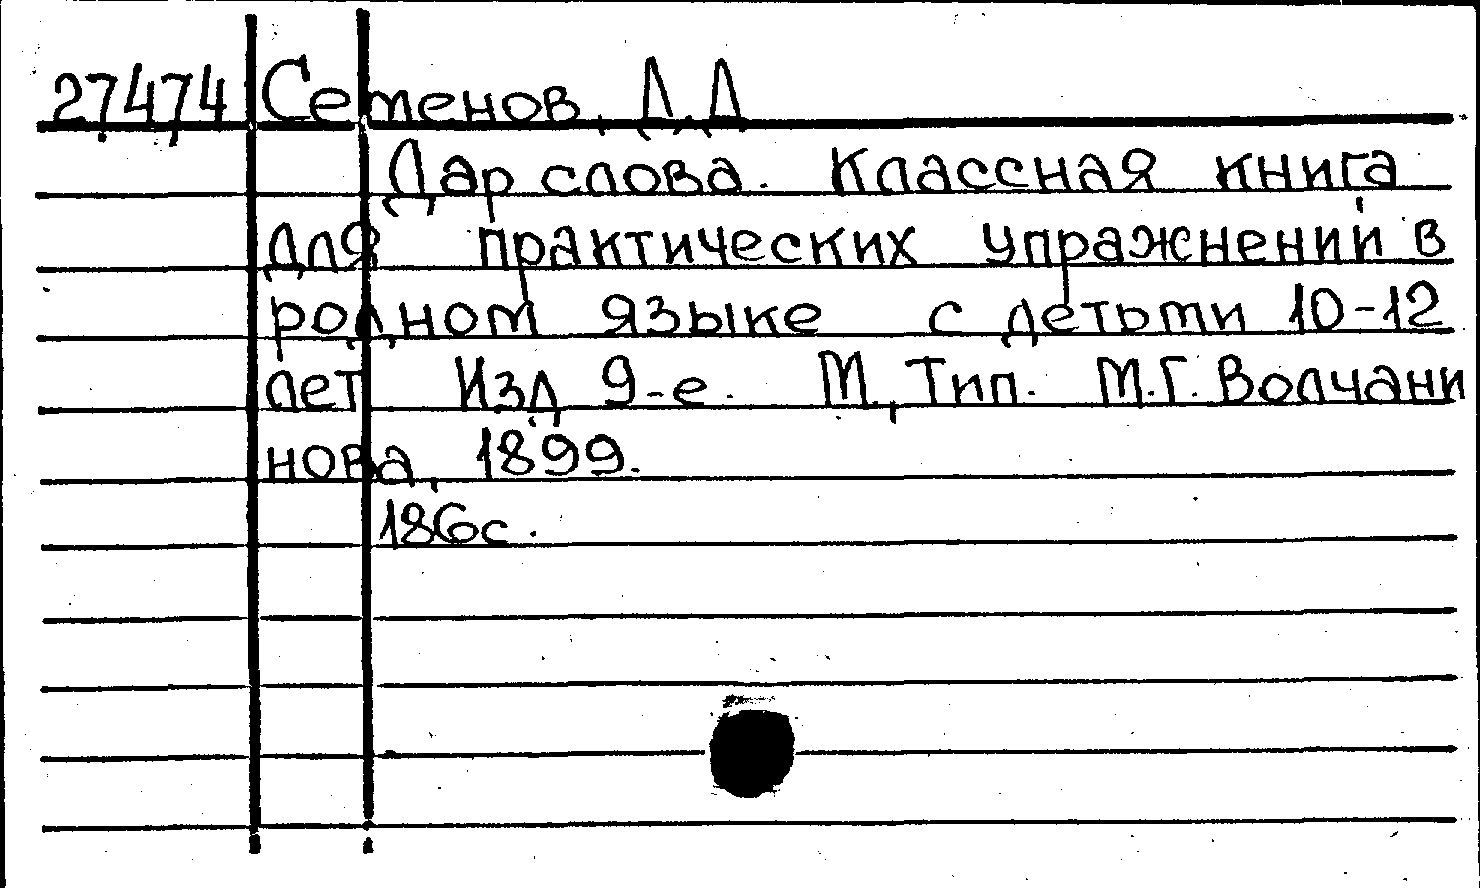 27474 Семенов, Д.Д
Дар слова. Классная книга
для практических упражнений в
родном языке с детьми 10-12
лет Изд 9-е. М., Тип. М.Г. Волчани
нова, 1899.
186с.